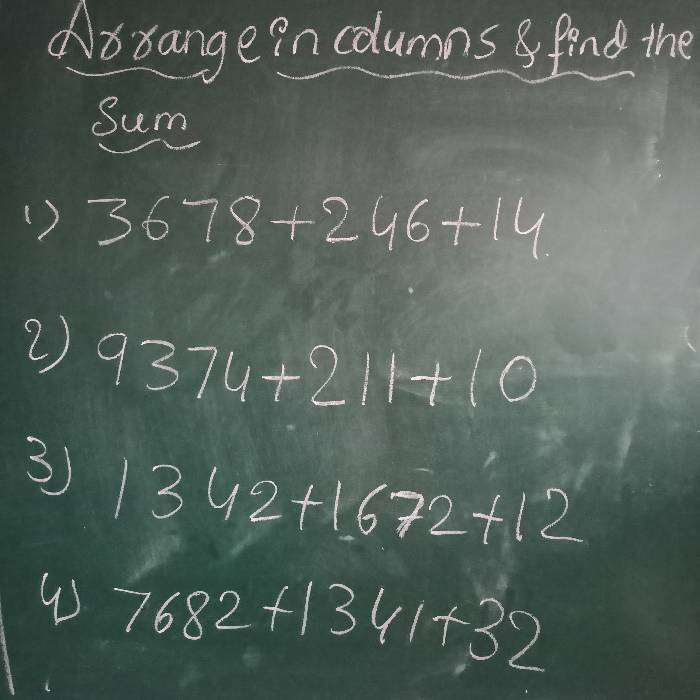 Arrange in columns & find the
Sum
1) 3678+246+14
2) 9374+211+10
3) 1342+1672+12
4) 7682+1341+32